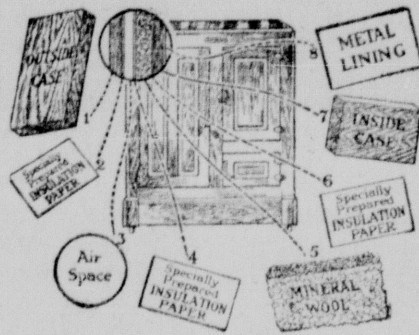 OUTSIDE
CASE
1
Specially
Prepared
INSULATION
PAPER
2
Air
Space
3
Specially
Prepared
INSULATION
PAPER
4
MINERAL
WOOL
5
Specially
Prepared
INSULATION
PAPER
6
INSIDE
CASE
7
METAL
LINING
8